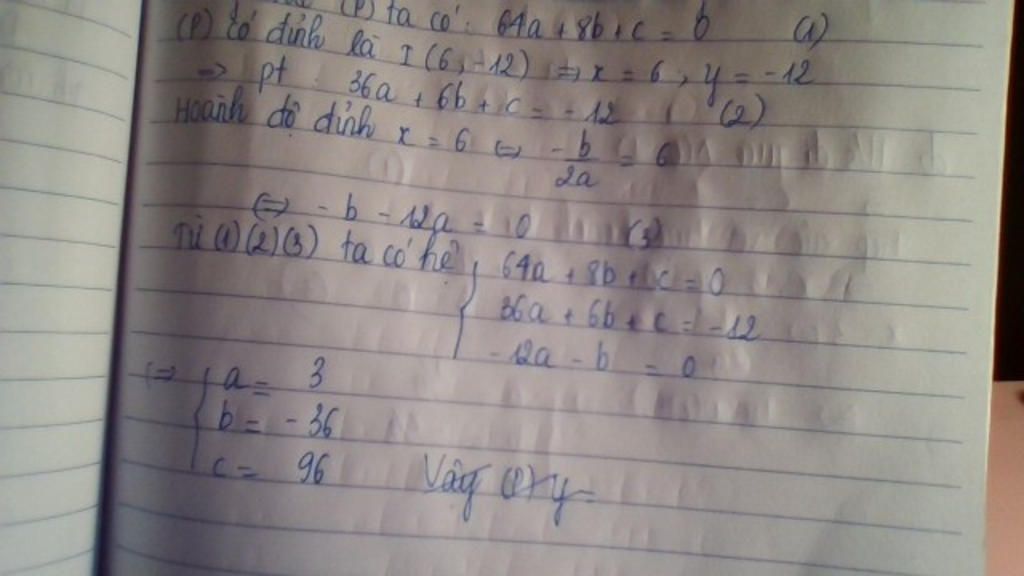 (P) ta có: 64a + 8b + c = 0 (1)
(P) có đỉnh là I (6, -12) => x = 6, y = -12
=> pt: 36a + 6b + c = -12 (2)
Hoành độ đỉnh x = 6 <=> -b/2a = 6
<=> -b - 12a = 0 (3)
Từ (1)(2)(3) ta có hệ { 64a + 8b + c = 0
36a + 6b + c = -12
-12a - b = 0
<=> { a = 3
b = -36
c = 96 Vậy (P) y =